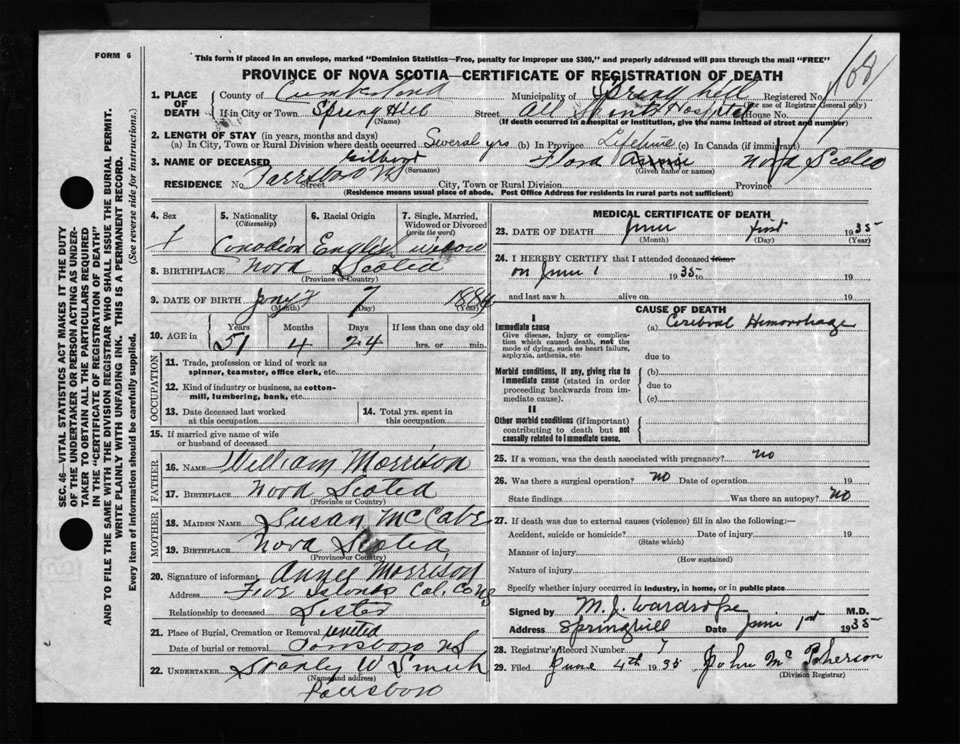 FORM 6
This form if placed in an envelope, marked "Dominion Statistics—Free, penalty for improper use $300," and properly addressed will pass through the mail "FREE"
PROVINCE OF NOVA SCOTIA—CERTIFICATE OF REGISTRATION OF DEATH
1. PLACE OF DEATH
County of Cumberland Municipality of Springhill Registered No.
(For use of Registrar General only)
If in City or Town Spring Hill Street All Saints Hospital House No.
(Name) (If death occurred in a hospital or institution, give the name instead of street and number)
2. LENGTH OF STAY (in years, months and days)
(a) In City, Town or Rural Division where death occurred Several yrs (b) In Province Lifetime (c) In Canada (if immigrant)
3. NAME OF DECEASED Flora Nova Scotia
(Surname) (Given name or names)
RESIDENCE No. Parrsboro NS Street City, Town or Rural Division Province
(Residence means usual place of abode. Post Office Address for residents in rural parts not sufficient)
4. Sex f
5. Nationality (Citizenship) Canadian
6. Racial Origin English
7. Single, Married, Widowed or Divorced (write the word) widow
8. BIRTHPLACE Nova Scotia
(Province or Country)
9. DATE OF BIRTH Jany 7 1884
(Month) (Day) (Year)
10. AGE in Years 51 Months 4 Days 24 If less than one day old
hrs. or min.
OCCUPATION
11. Trade, profession or kind of work as
spinner, teamster, office clerk, etc.
12. Kind of industry or business, as cotton-
mill, lumbering, bank, etc.
13. Date deceased last worked
at this occupation
14. Total yrs. spent in
this occupation
15. If married give name of wife
or husband of deceased
FATHER
16. NAME William Morrison
17. BIRTHPLACE Nova Scotia
(Province or Country)
MOTHER
18. MAIDEN NAME Susan McCabe
19. BIRTHPLACE Nova Scotia
(Province or Country)
20. Signature of informant Annie Morrison
Address Five Islands Col. Co NS
Relationship to deceased Sister
21. Place of Burial, Cremation or Removal
Date of burial or removal Parrsboro NS
22. UNDERTAKER Stanly W Smith
(Name and address)
Parrsboro
MEDICAL CERTIFICATE OF DEATH
23. DATE OF DEATH June first 1935
(Month) (Day) (Year)
24. I HEREBY CERTIFY that I attended deceased from:
on June 1 1935 to 19
and last saw h alive on 19
CAUSE OF DEATH
I
Immediate cause
Give disease, injury or complica-
tion which caused death, not the
mode of dying, such as heart failure,
asphyxia, asthenia, etc.
(a) Cerebral Hemorrhage
due to
Morbid conditions, if any, giving rise to
immediate cause (stated in order
proceeding backwards from im-
mediate cause).
(b)
due to
(c)
II
Other morbid conditions (if important)
contributing to death but not
causally related to immediate cause.
25. If a woman, was the death associated with pregnancy? no
26. Was there a surgical operation? no Date of operation 19
State findings Was there an autopsy? no
27. If death was due to external causes (violence) fill in also the following:—
Accident, suicide or homicide? Date of injury 19
(State which)
Manner of injury
(How sustained)
Nature of injury
Specify whether injury occurred in industry, in home, or in public place
Signed by M. J. Wardrope M.D.
Address Springhill Date June 1st 1935
28. Registrar's Record Number 7
29. Filed June 4th 1935 John McPherson
(Division Registrar)
SEC. 46—VITAL STATISTICS ACT MAKES IT THE DUTY
OF THE UNDERTAKER OR PERSON ACTING AS UNDER-
TAKER TO OBTAIN ALL THE PARTICULARS REQUIRED
IN THE "CERTIFICATE OF REGISTRATION OF DEATH"
AND TO FILE THE SAME WITH THE DIVISION REGISTRAR WHO SHALL ISSUE THE BURIAL PERMIT.
WRITE PLAINLY WITH UNFADING INK. THIS IS A PERMANENT RECORD.
Every item of information should be carefully supplied. (See reverse side for instructions.)